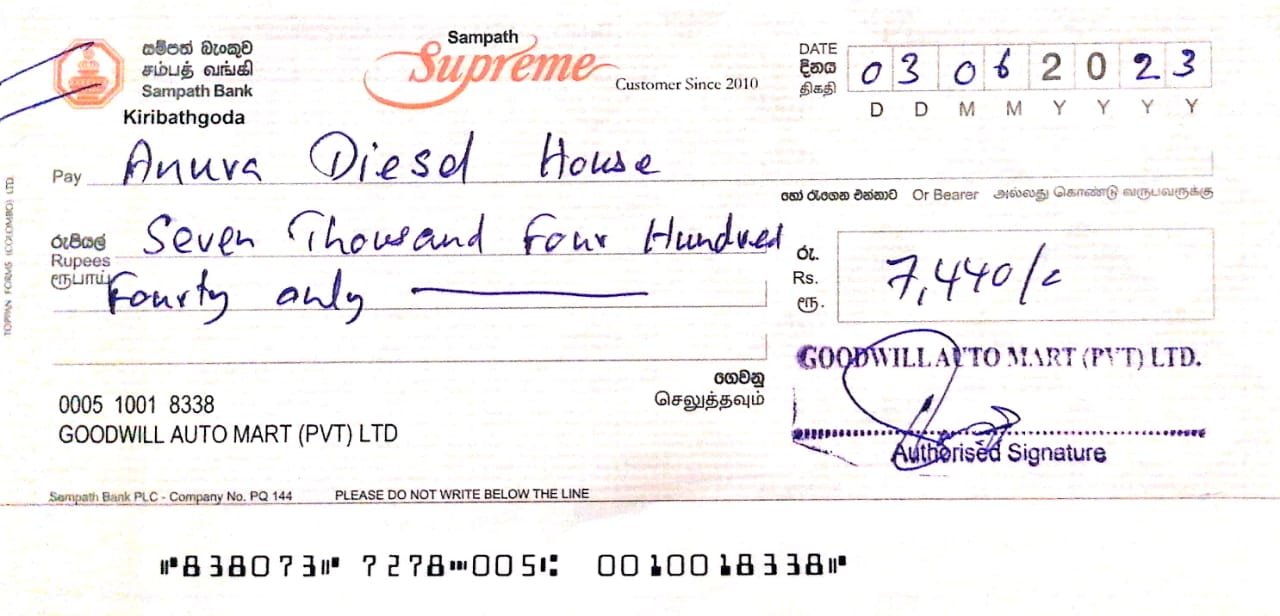 සම්පත් බැංකුව
சம்பத் வங்கி
Sampath Bank
Kiribathgoda
Sampath
Supreme
Customer Since 2010
DATE
දිනය
திகதி
0 3 0 6 2 0 2 3
D D M M Y Y Y Y
Pay Anura Diesel House
හෝ රැගෙන එන්නාට Or Bearer அல்லது கொண்டு வருபவருக்கு
රුපියල්
Rupees
ரூபாய்
Seven Thousand Four Hundred
Fourty only
රු.
Rs.
ரூ.
7,440/-
ගෙවනු
செலுத்தவும்
0005 1001 8338
GOODWILL AUTO MART (PVT) LTD
GOODWILL AUTO MART (PVT) LTD.
Authorised Signature
TOPPAN FORMS (COLOMBO) LTD.
Sampath Bank PLC - Company No. PQ 144 PLEASE DO NOT WRITE BELOW THE LINE
⑈838073⑈ 7278⑉005⑆ 0010018338⑈